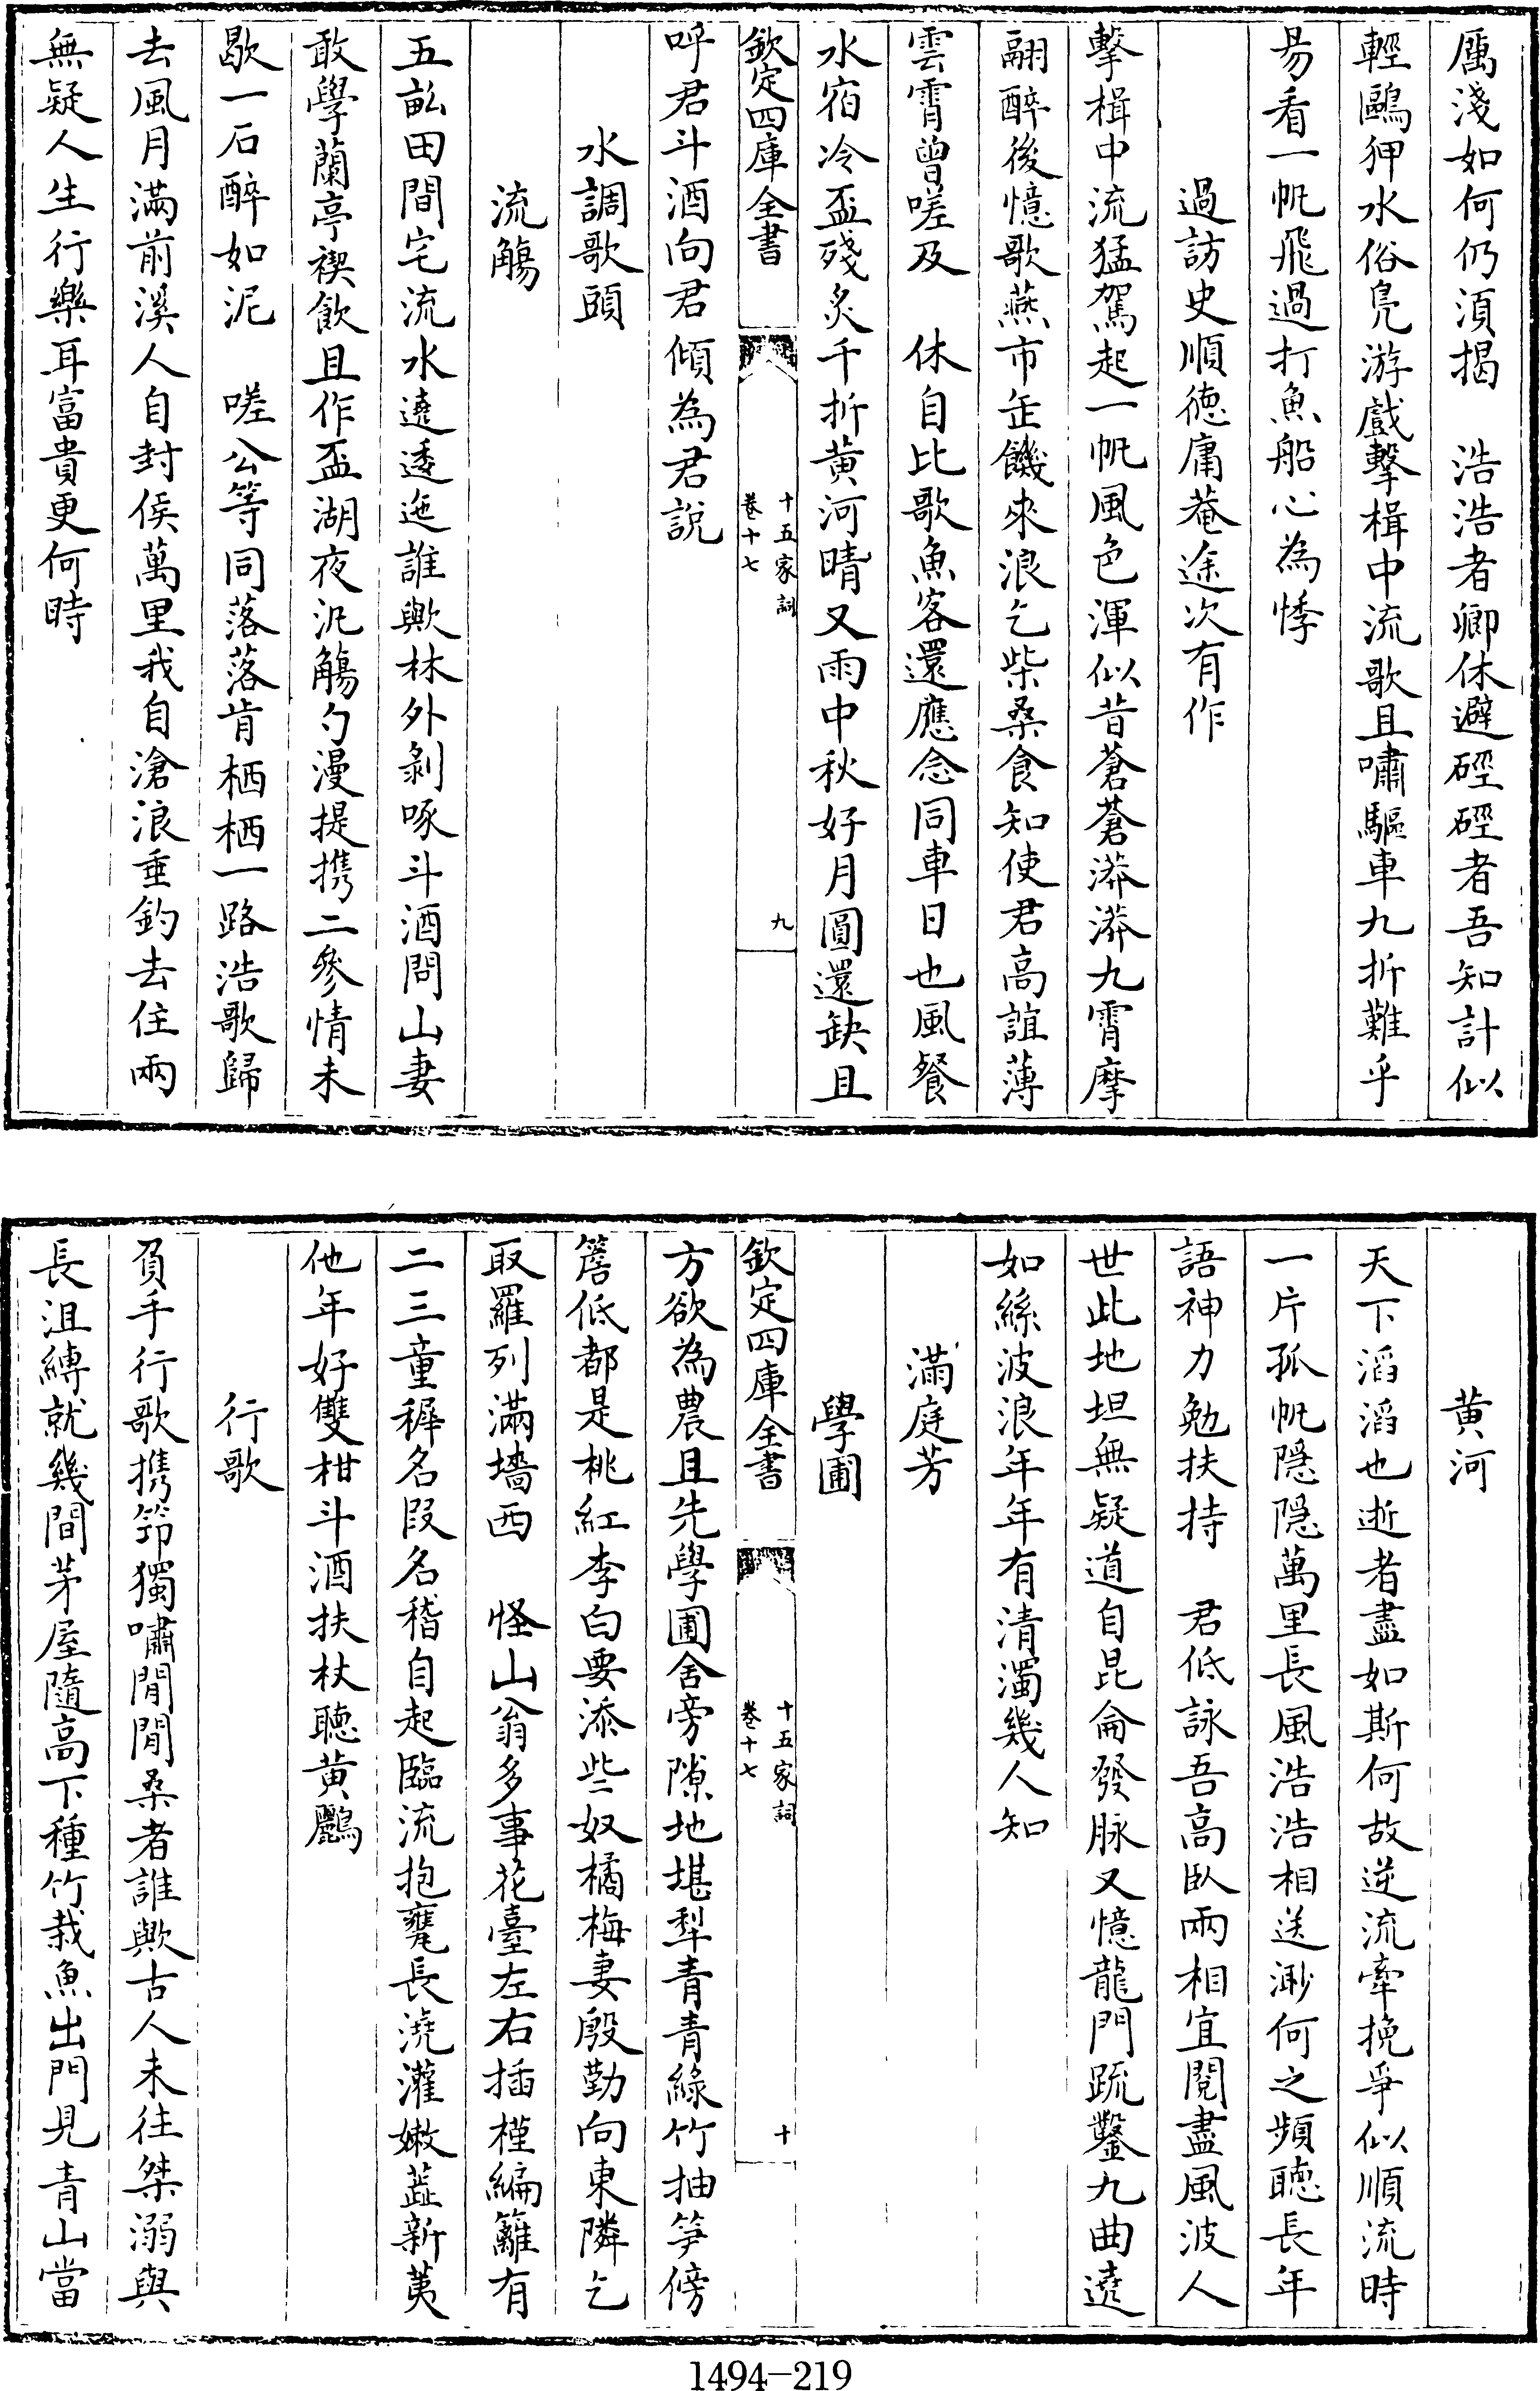 厲淺如何仍須揭　浩浩者卿休避硜硜者吾知計似
輕鷗狎水俗鳧游戲擊楫中流歌且嘯驅車九折難乎
易看一帆飛過打魚船心為悸
過訪史順德庸菴途次有作
擊楫中流猛駕起一帆風色渾似昔蒼蒼漭漭九霄摩
翮醉後憶歌燕市缶饑來浪乞柴桑食知使君高誼薄
雲霄曾嗟及　休自比歌魚客還應念同車日也風餐
水宿冷盃殘炙千折黄河晴又雨中秋好月圓還缺且
欽定四庫全書
十五家詞
卷十七
九
呼君斗酒向君傾為君說
水調歌頭
流觴
五畝田間宅流水遶逶迤誰歟林外剝啄斗酒問山妻
敢學蘭亭禊飲且作盃湖夜汎觴勺漫提携二參情未
歇一石醉如泥　嗟公等同落落肯栖栖一路浩歌歸
去風月滿前溪人自封侯萬里我自滄浪垂釣去住兩
無疑人生行樂耳富貴更何時
黄河
天下滔滔也逝者盡如斯何故逆流牽挽爭似順流時
一片孤帆隱隱萬里長風浩浩相送渺何之頻聽長年
語神力勉扶持　君低詠吾高臥兩相宜閱盡風波人
世此地坦無疑道自昆侖發脉又憶龍門疏鑿九曲遶
如絲波浪年年有清濁幾人知
滿庭芳
學圃
欽定四庫全書
十五家詞
卷十七
十
方欲為農且先學圃舍旁隙地堪犁青青綠竹抽笋傍
簷低都是桃紅李白要添些奴橘梅妻殷勤向東隣乞
取羅列滿墻西　怪山翁多事花臺左右插槿編籬有
二三童穉名叚名稽自起臨流抱甕長澆灌嫩韮新荑
他年好雙柑斗酒扶杖聽黄鸝
行歌
負手行歌携筇獨嘯閒閒桑者誰歟古人未往桀溺與
長沮縛就幾間茅屋隨高下種竹栽魚出門見青山當
1494-219